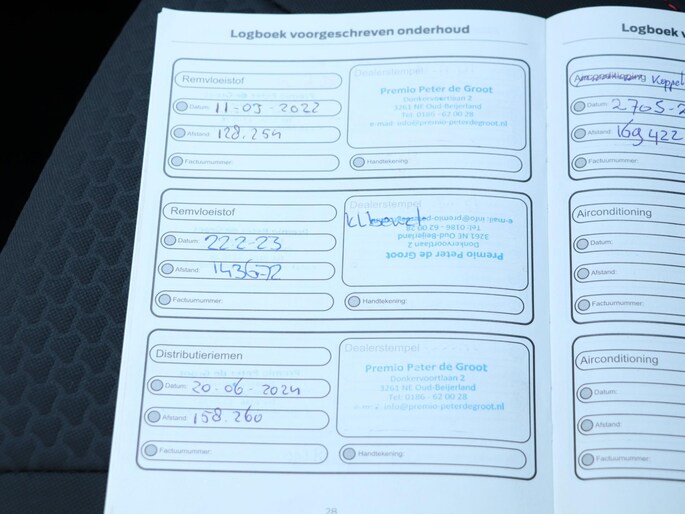 Logboek voorgeschreven onderhoud
Remvloeistof
Datum: 11-03-2022
Afstand: 128.254
Factuurnummer:
Dealerstempel
Premio Peter de Groot
Donkervoortlaan 2
3261 NE Oud-Beijerland
Tel: 0186 - 62 00 28
e-mail: info@premio-peterdegroot.nl
Handtekening:
Remvloeistof
Datum: 222-23
Afstand: 143672
Factuurnummer:
Dealerstempel
e-mail: info@premio-peterdegroot.nl
Tel: 0186 - 62 00 28
3261 NE Oud-Beijerland
Donkervoortlaan 2
Premio Peter de Groot
Handtekening:
Distributieriemen
Datum: 20-06-2024
Afstand: 158.260
Factuurnummer:
Dealerstempel
Premio Peter de Groot
Donkervoortlaan 2
3261 NE Oud-Beijerland
Tel: 0186 - 62 00 28
info@premio-peterdegroot.nl
Handtekening:
28
Logboek v
Airconditioning
Datum: 2705-2
Afstand: 169422
Factuurnummer:
Airconditioning
Datum:
Afstand:
Factuurnummer:
Airconditioning
Datum:
Afstand:
Factuurnummer: